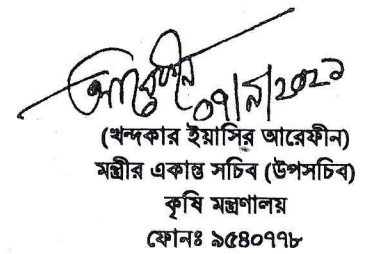 আরেফীন
০৭/৯/২০২১
(খন্দকার ইয়াসির আরেফীন)
মন্ত্রীর একান্ত সচিব (উপসচিব)
কৃষি মন্ত্রণালয়
ফোনঃ ৯৫৪০৭৭৮